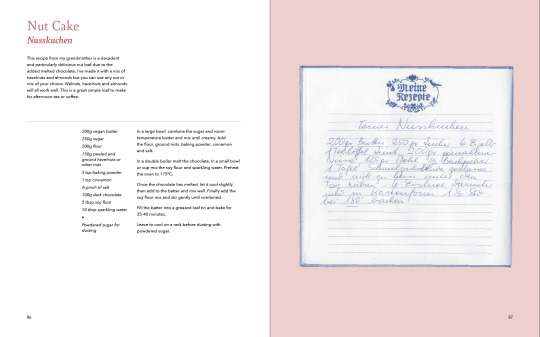 Nut Cake
Nusskuchen
This recipe from my grandmother is a decadent
and particularly delicious nut loaf due to the
added melted chocolate. I've made it with a mix of
hazelnuts and almonds but you can use any nut or
mix of your choice. Walnuts, hazelnuts and almonds
will all work well. This is a great simple loaf to make
for afternoon tea or coffee.
200g vegan butter
250g sugar
200g flour
150g peeled and
ground hazelnuts or
other nuts
3 tsp baking powder
1 tsp cinnamon
A pinch of salt
100g dark chocolate
5 tbsp soy flour
10 tbsp sparkling water
+
Powdered sugar for
dusting
In a large bowl, combine the sugar and room-
temperature butter and mix until creamy. Add
the flour, ground nuts, baking powder, cinnamon
and salt.
In a double boiler melt the chocolate. In a small bowl
or cup mix the soy flour and sparkling water. Preheat
the oven to 175°C.
Once the chocolate has melted, let it cool slightly
then add to the batter and mix well. Finally add the
soy flour mix and stir gently until combined.
Fill the batter into a greased loaf tin and bake for
35-40 minutes.
Leave to cool on a rack before dusting with
powdered sugar.
86
Meine
Rezepte
Nusskuchen
200gr Butter 250gr Zucker 6 Eigelb
1 Teelöffel Zimt, 200gr
Nüsse 125gr Mehl 1/2 Backpulver
1 Tafel
6 Eiweiss
in Kastenform
bei 180° backen!
87